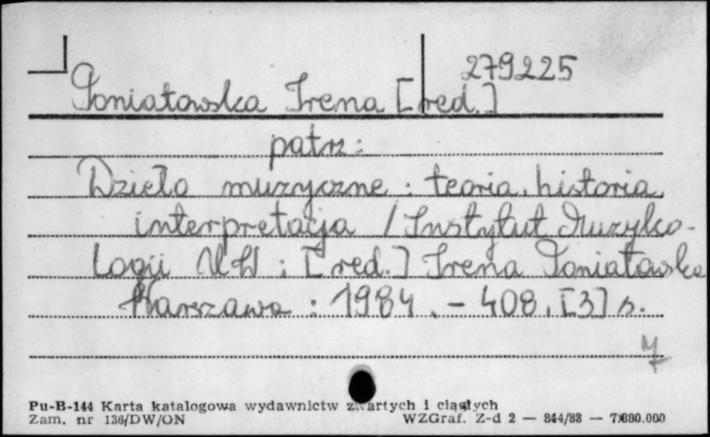 279225
Poniatowska Irena [red.]
patrz:
Dzieło muzyczne : teoria, historia,
interpretacja / Instytut Muzyko-
logii UW ; [red.] Irena Poniatowska
Warszawa : 1984. - 408, [3] s.
Pu-B-144 Karta katalogowa wydawnictw zwartych i ciągłych
Zam. nr 136/DW/ON WZGraf. Z-d 2 — 844/83 — 7.880.000